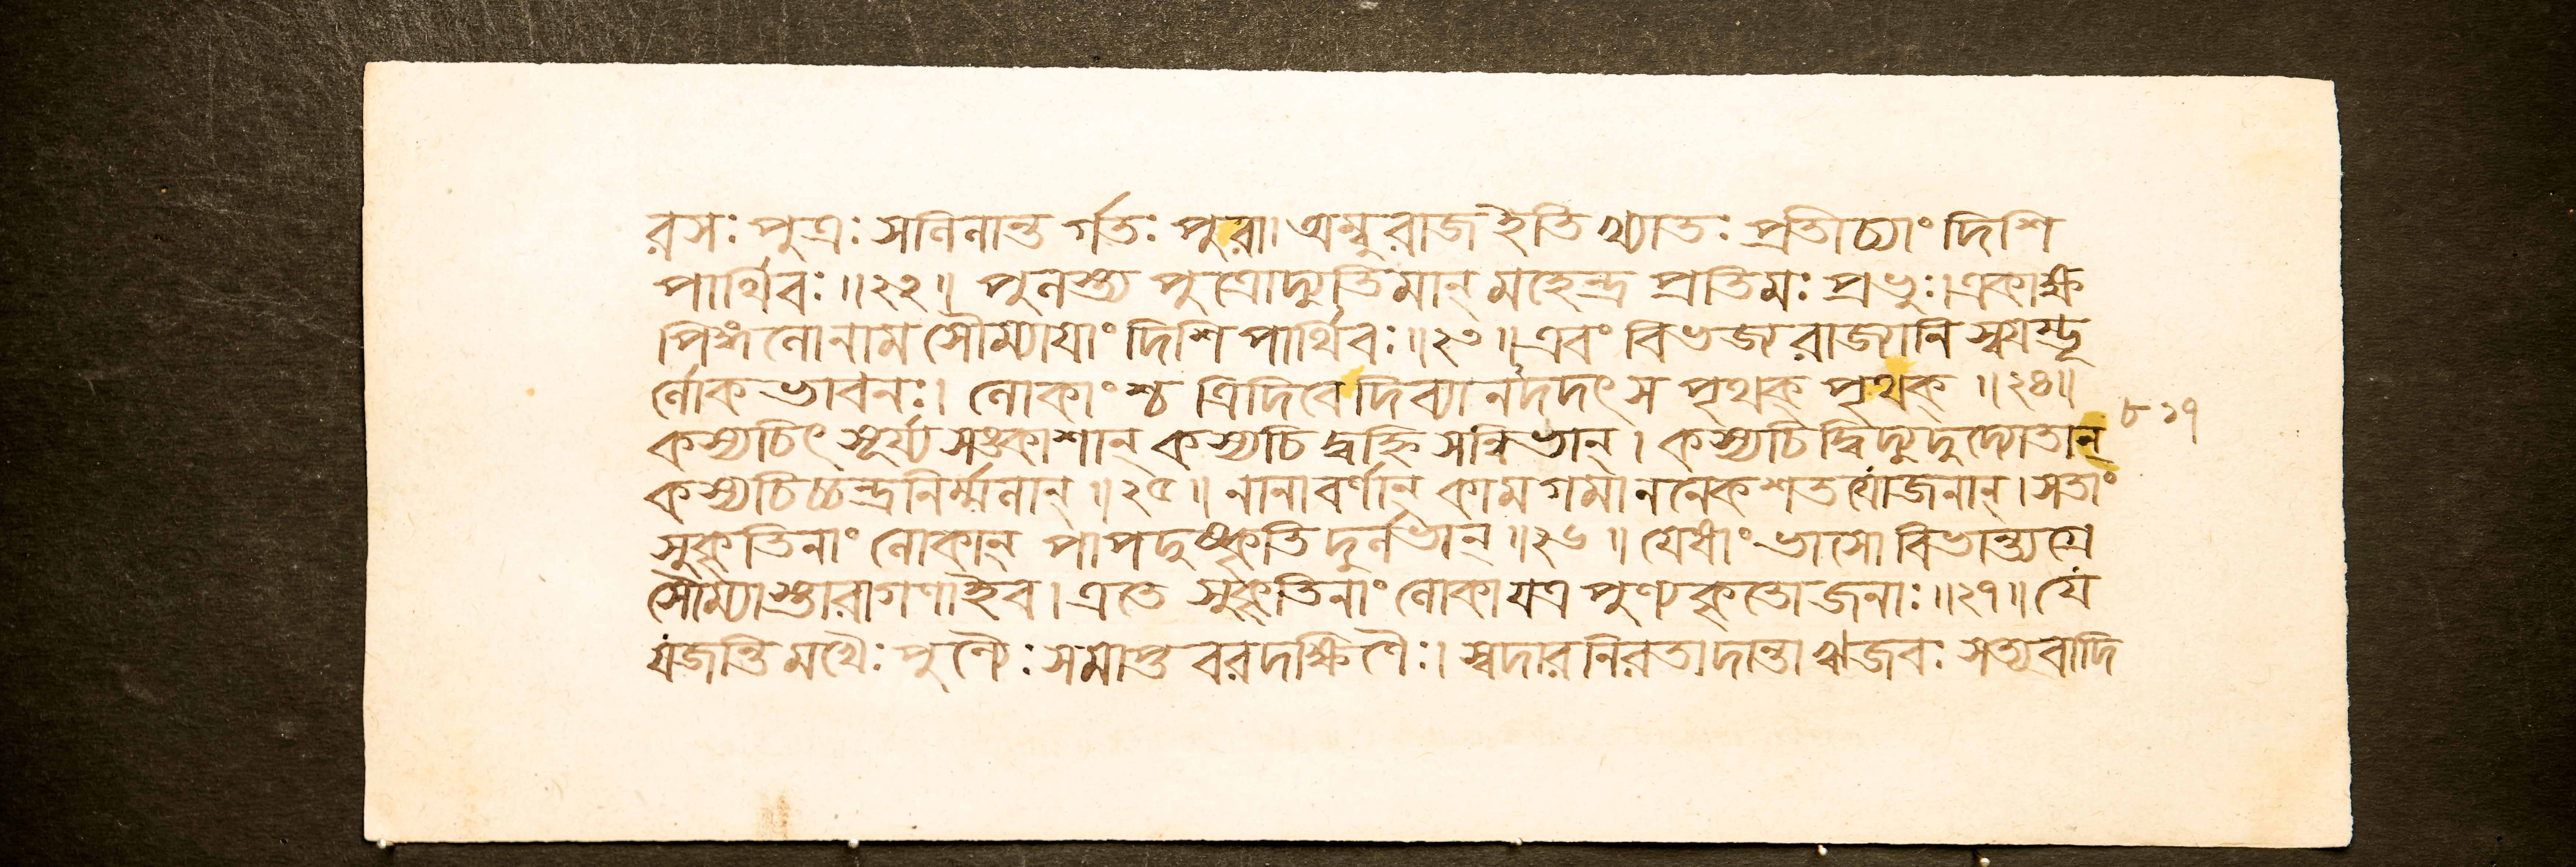 রসঃ পুত্রঃ সলিলান্ত র্গতঃ পুরা। অম্বুরাজ ইতি খ্যাতঃ প্রতীচ্যাং দিশি
পার্থিবঃ ॥২২॥ পুলস্ত্য পুত্রোদ্যুতিমান্ মহেন্দ্র প্রতিমঃ প্রভুঃ। একাক্ষি
পিঙ্গলোনাম সৌম্যাযাং দিশি পার্থিবঃ ॥২৩॥ এবং বিভজ্য রাজ্যানি স্বযম্ভূ
র্লোক ভাবনঃ। লোকাংশ্চ ত্রিদিবে দিব্যানদদৎ স পৃথক্ পৃথক্ ॥২৪॥
কস্যচিৎ সূর্য্য সঙ্কাশান্ কস্যচি দ্বহ্নি সন্নিভান্। কস্যচিদ্বিদ্যুদুদ্যোতান্
কস্যচিচ্চন্দ্রনির্ম্মলান্ ॥২৫॥ নানাবর্ণান্ কামগমাননেকশতযোজনান্। সতাং
সুকৃতিনাং লোকান্ পাপদুষ্কৃতি দুর্লভান্ ॥২৬॥ যেষাং ভাসো বিভান্ত্যগ্রে
সৌম্যাস্তারাগণাইব। এতে সুকৃতিনাং লোকা যত্র পুণ্যকৃতো জনাঃ ॥২৭॥ যে
যজন্তি মখৈঃ পুণ্যৈঃ সমাপ্ত বরদক্ষিণৈঃ। স্বদারনিরতা দান্তা ঋজবঃ সত্যবাদি
৮১৭